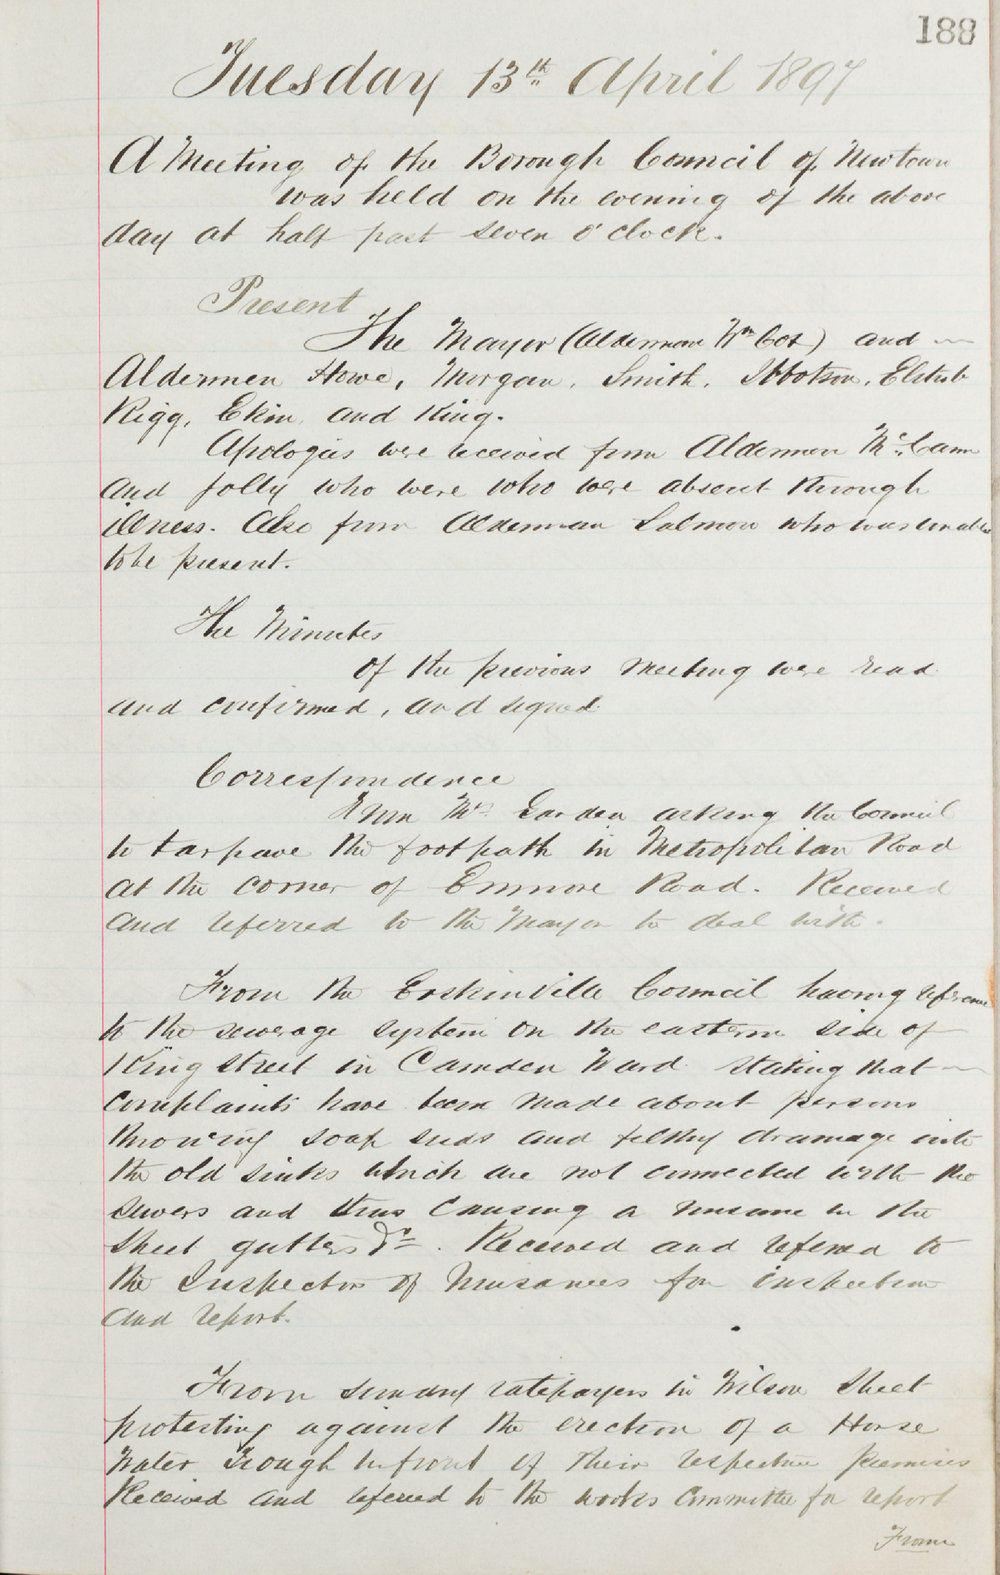 188
Tuesday 13th April 1897
A Meeting of the Borough Council of Newtown
was held on the evening of the above
day at half past seven o'clock.
Present
The Mayor (Alderman Wm Cox) and
Aldermen Howe, Morgan, Smith, Ibbotson,
Rigg, Ekin, and King.
Apologies were received from Aldermen McCann
and Jolly who were who were absent through
illness. Also from Alderman Salmon who was unable
to be present.
The Minutes
of the previous meeting were read
and confirmed, and signed
Correspondence
From Mr. Garden asking the Council
to tarpave the footpath in Metropolitan Road
at the corner of Enmore Road. Received
and referred to the Mayor to deal with.
From the Erskinville Council having reference
to the sewerage system on the eastern side of
King Street in Camden Ward stating that
complaints have been made about persons
throwing soap suds and filthy drainage into
the old sinks which are not connected with the
sewers and thus causing a nuisance in the
street gutters &c. Received and referred to
the Inspector of Nuisances for inspection
and report.
From sundry ratepayers in Wilson Street
protesting against the erection of a Horse
Water Trough in front of their respective premises
Received and referred to the works Committee for report
From